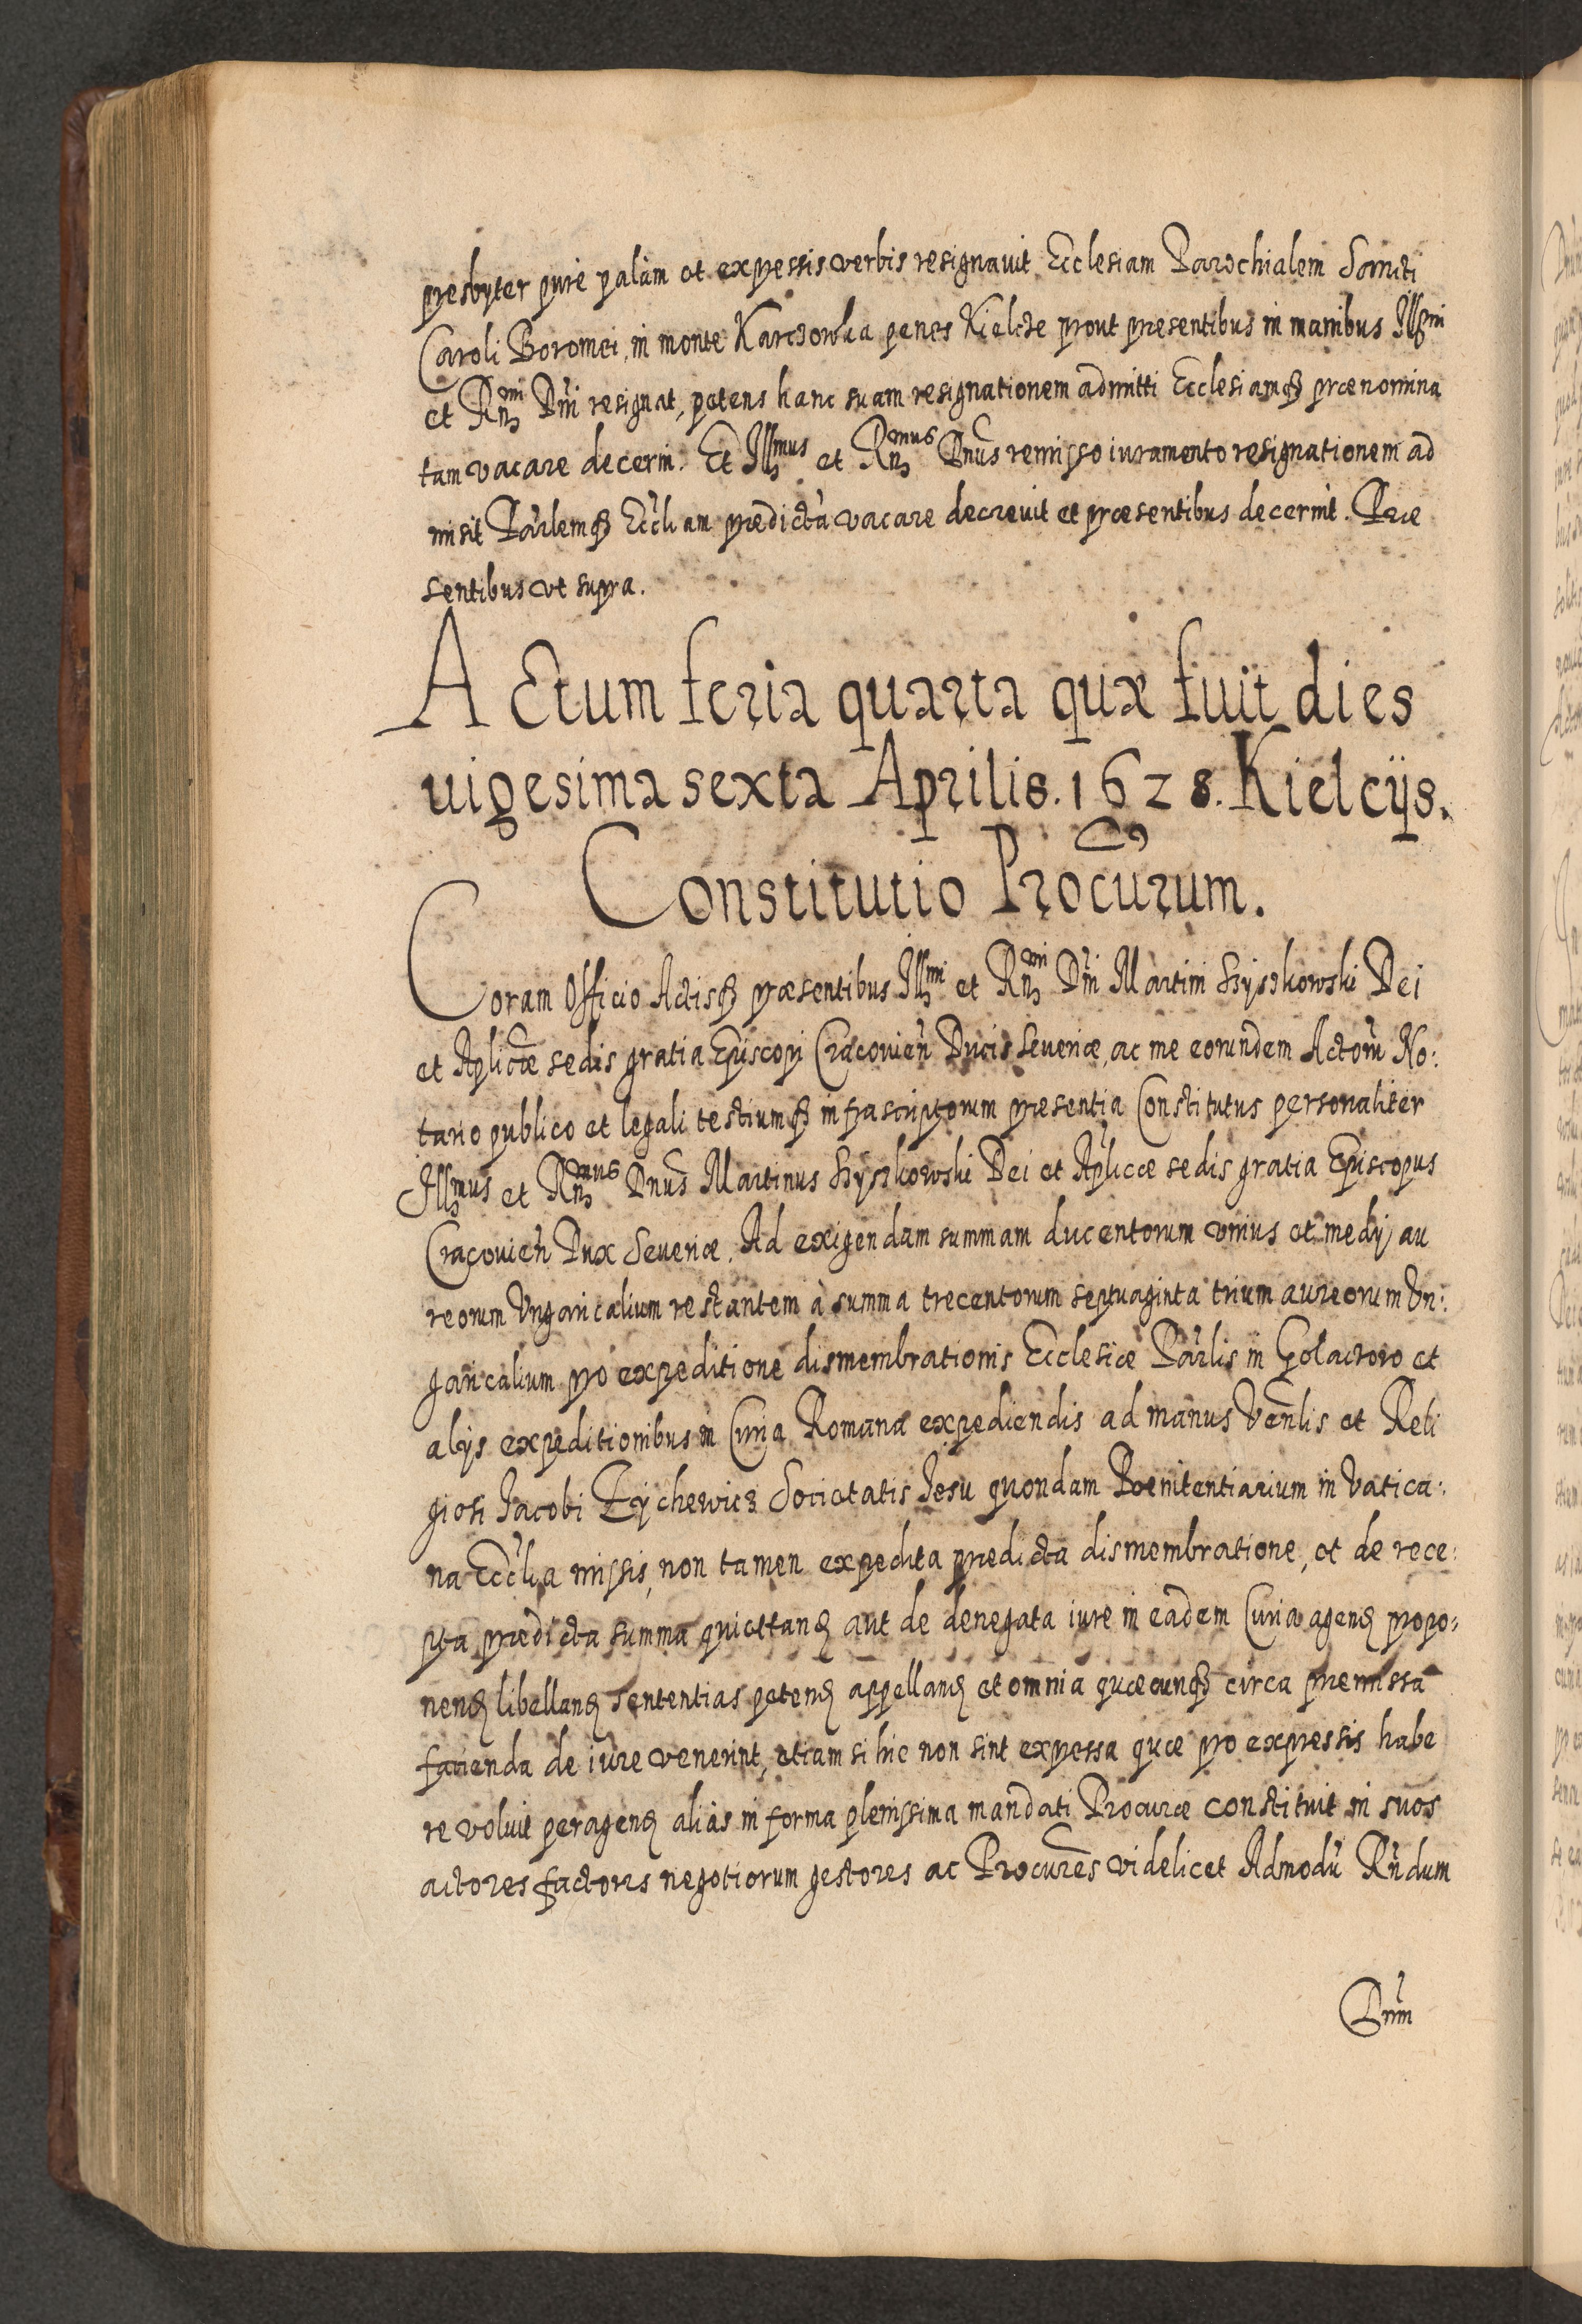 presbyter pure palàm et expressis verbis resignavit Ecclesiam Parochialem Sancti
Caroli Boromei, in monte Karczowka penes Kielcze prout presentibus in manibus Illmi
et Rmi Dni resignat, petens hanc suam resignationem admitti Ecclesiamq prænomina
tam vacare decerni. Et Illmus et Rmus Dnus remisso iuramento resignationem ad
misit Parlemq Ecclíam predictà vacare decrevit et præsentibus decernit. Præ
sentibus ut supra.
Actum feria quarta quæ fuit dies
uigesima sexta Aprilis. 1628. Kielcijs.
Constitutio Procurum.
Coram Officio Actisq præsentibus Illmi et Rmi Dni Martini Szyszkowski Dei
et Aplicæ sedis gratia Episcopi Cracovien Ducis Severiæ, ac me eorundem Actorù No:
tario publico et legali testiumq infrascriptorum presentia Constitutus personaliter
Illmus et Rmus Dnus Martinus Szyszkowski Dei et Aplicæ sedis gratia Episcopus
Cracovien Dux Severiæ. Ad exigendam summam ducentorum unius et medij au
reorum Ungaricalium restantem à summa trecentorum septuaginta trium aureorum Un:
garicalium pro expeditione dismembrationis Ecclesiæ Parlis in Golaczow et
alijs expeditionibus in Curia Romana expediendis ad manus Venlis et Reli
giosi Jacobi Zychewicz Societatis Jesu quondam Pœnitentiarium in Vatica:
na Ecclia missis, non tamen expedita predicta dismembratione, et de rece:
pta predicta summa quiettand aut de denegata iure in eadem Curia agend propo:
nend libelland sententias petend appelland et omnia quæcunq circa premissa
facienda de iure venerint, etiam si hic non sint expressa quæ pro expressis habe
re voluit peragend aliàs in forma plenissima mandati Procuræ constituit in suos
actores factores negotiorum gestores ac Procures videlicet Admodù Rndum
Dnm